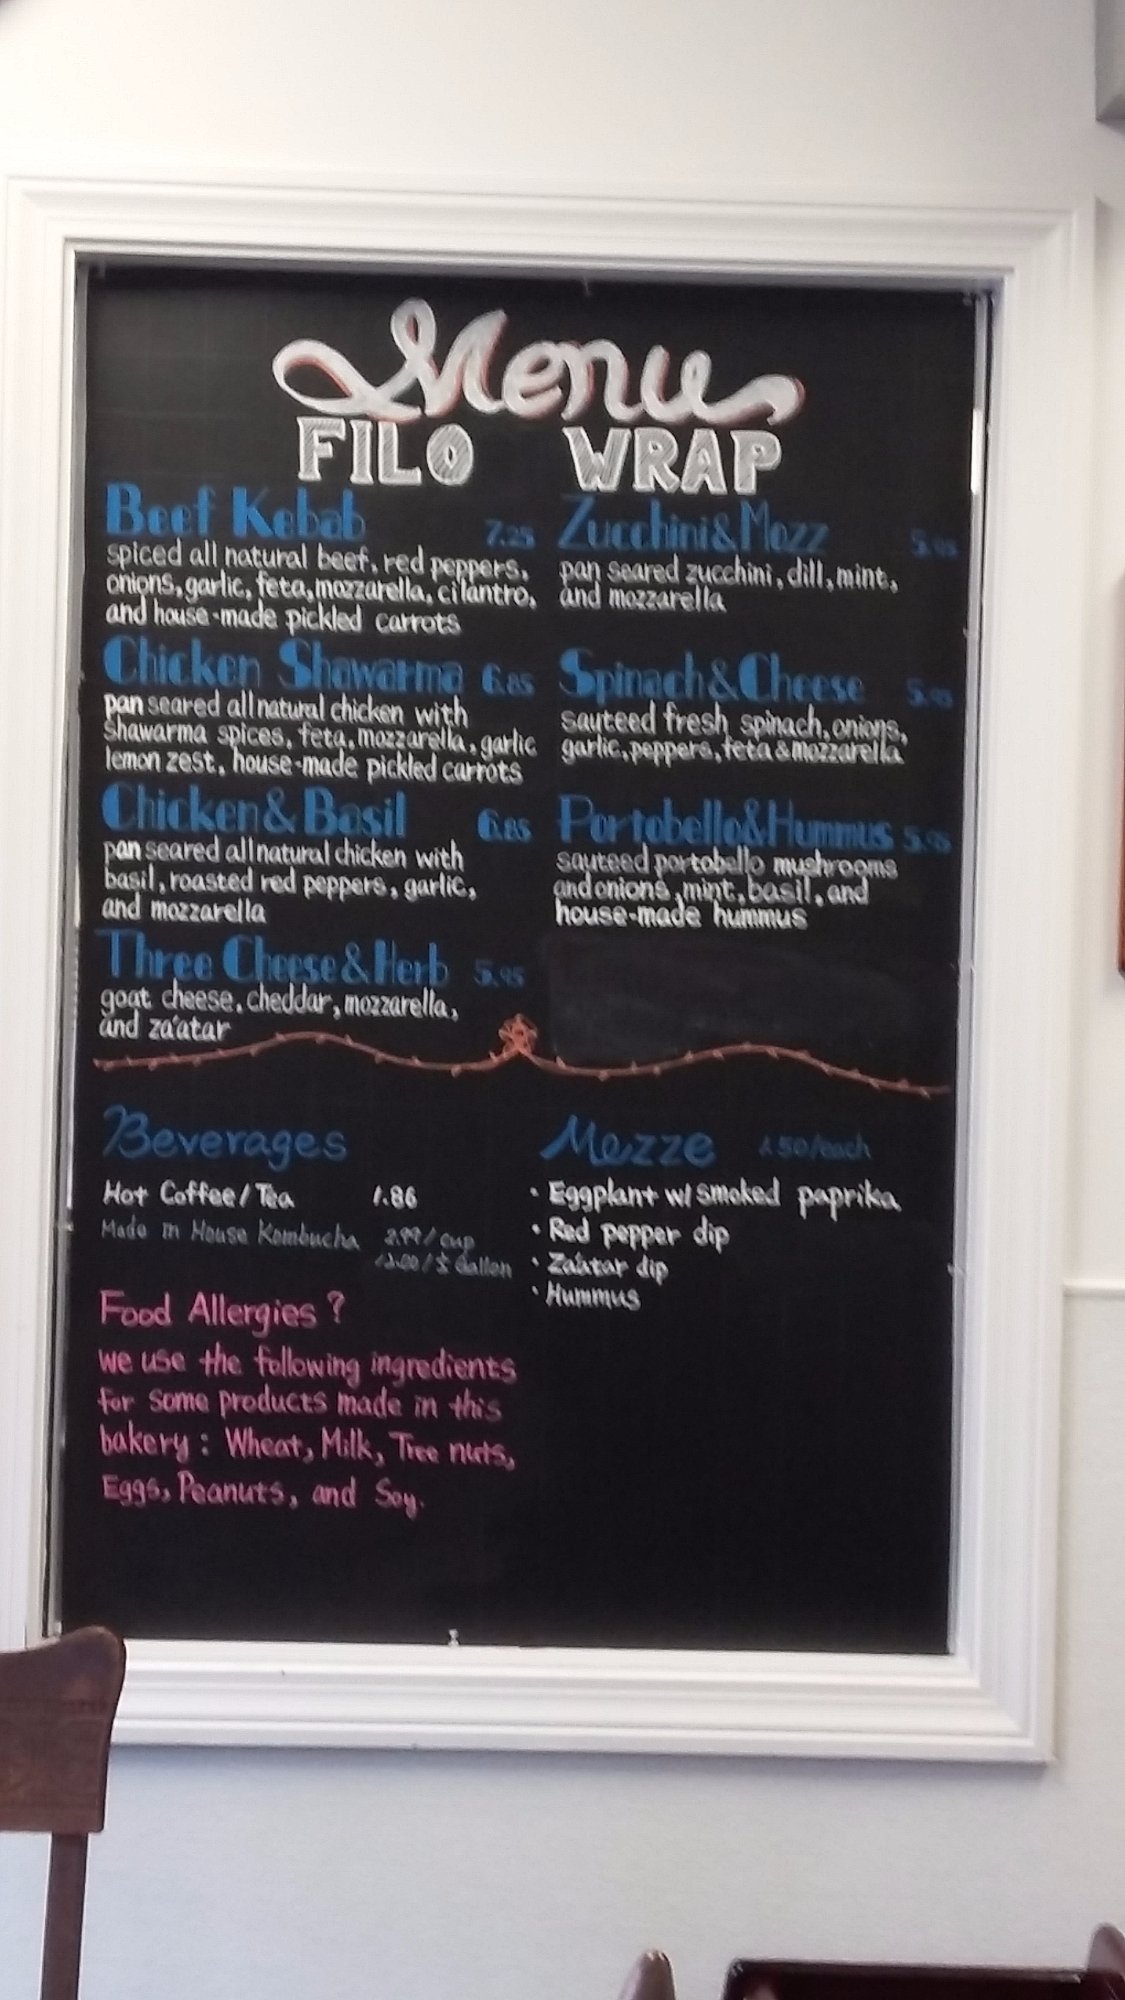 Menu
FILO WRAP
Beef Kebab 7.25
spiced all natural beef, red peppers,
onions, garlic, feta, mozzarella, cilantro,
and house-made pickled carrots
Chicken Shawarma 6.85
pan seared all natural chicken with
Shawarma spices, feta, mozzarella, garlic
lemon zest, house-made pickled carrots
Chicken & Basil 6.85
pan seared all natural chicken with
basil, roasted red peppers, garlic,
and mozzarella
Three Cheese & Herb 5.95
goat cheese, cheddar, mozzarella,
and za'atar
Zucchini & Mozz 5.95
pan seared zucchini, dill, mint,
and mozzarella
Spinach & Cheese 5.95
sauteed fresh spinach, onions,
garlic, peppers, feta & mozzarella
Portobello & Hummus 5.95
sauteed portobello mushrooms
and onions, mint, basil, and
house-made hummus
Beverages
Hot Coffee/Tea 1.86
Made in House Kombucha 2.99/cup
Gallon
Food Allergies?
we use the following ingredients
for some products made in this
bakery: Wheat, Milk, Tree nuts,
Eggs, Peanuts, and Soy.
Mezze
• Eggplant w/ smoked paprika
• Red pepper dip
• Za'atar dip
• Hummus